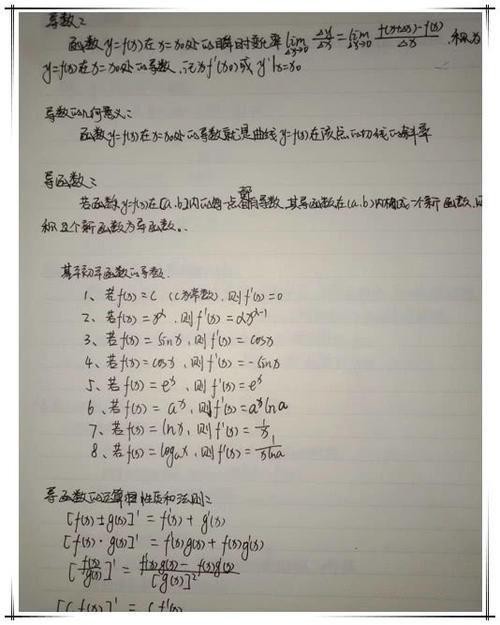 导数：
函数y=f(x)在x=x₀处的瞬时变化率 lim Δx→0 Δy/Δx = lim Δx→0 f(x+Δx)-f(x)/Δx，称为
y=f(x)在x=x₀处的导数，记为f'(x₀)或y'|x=x₀
导数的几何意义：
函数y=f(x)在x=x₀处的导数就是曲线y=f(x)在该点的切线的斜率
导函数：
若函数y=f(x)在[a,b]内的每一点都有导数，其导函数在(a,b)内构成一个新函数，
称这个新函数为导函数。
基本初等函数的导数
1、若f(x)=C（C为常数），则f'(x)=0
2、若f(x)=x^α，则f'(x)=αx^(α-1)
3、若f(x)=sinx，则f'(x)=cosx
4、若f(x)=cosx，则f'(x)=-sinx
5、若f(x)=e^x，则f'(x)=e^x
6、若f(x)=a^x，则f'(x)=a^x lna
7、若f(x)=lnx，则f'(x)=1/x
8、若f(x)=logₐx，则f'(x)=1/xlna
导函数的运算性质和法则：
[f(x)±g(x)]'=f'(x)+g'(x)
[f(x)·g(x)]'=f'(x)g(x)+f(x)g'(x)
[f(x)/g(x)]'=f'(x)g(x)-f(x)g'(x)/[g(x)]²
[Cf(x)]'=Cf'